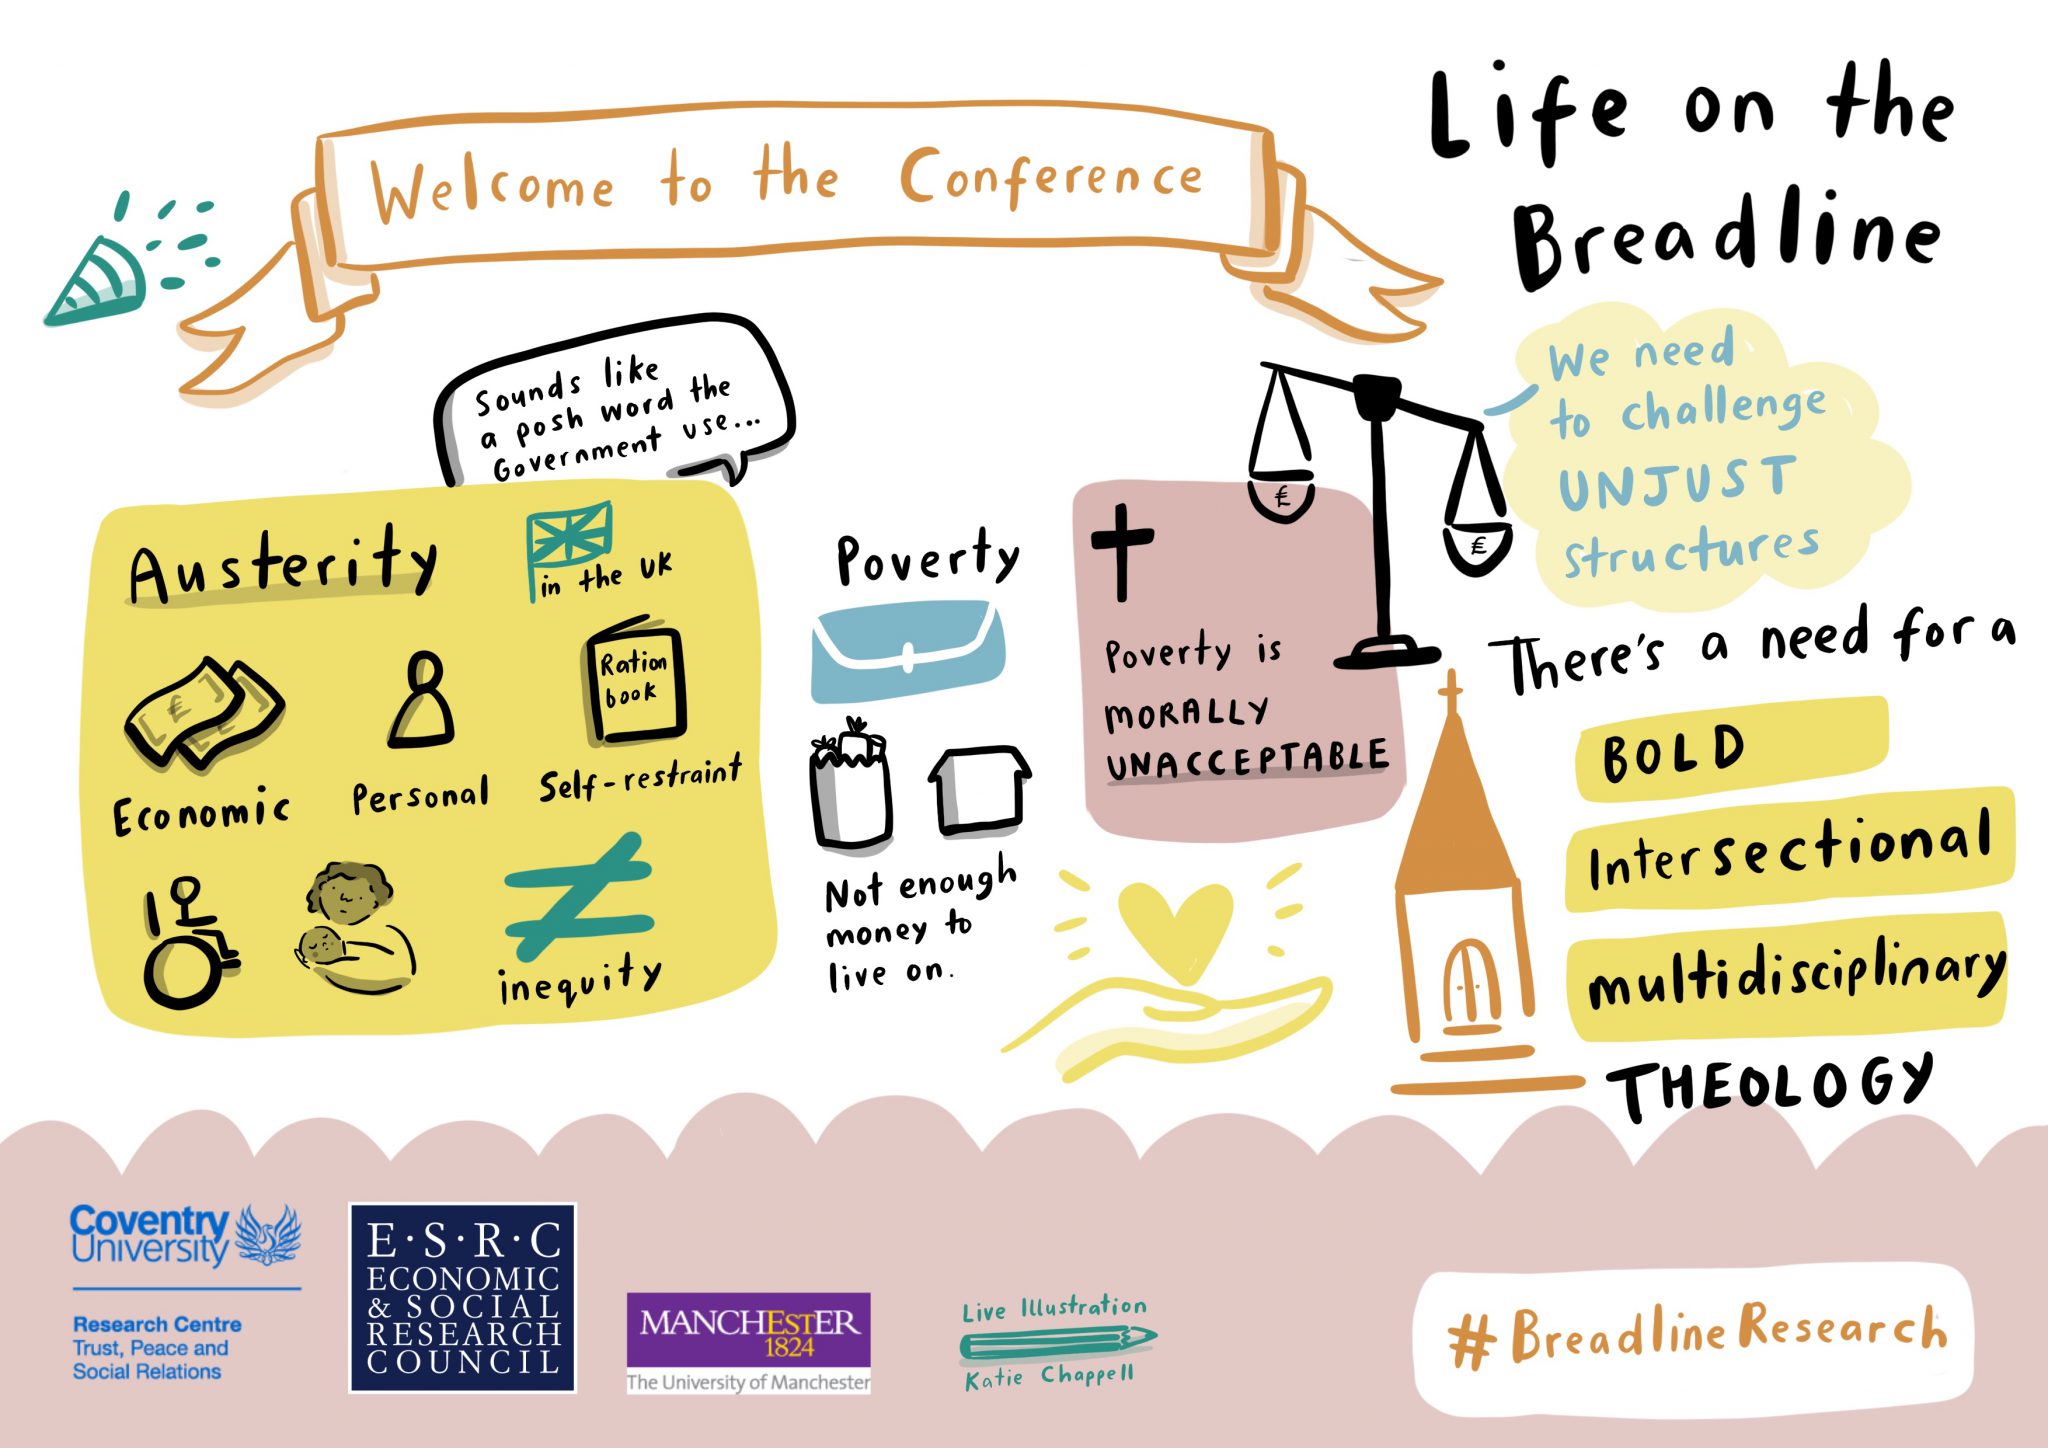 Welcome to the Conference
Life on the
Breadline
Sounds like
a posh word the
Government use...
Austerity
in the UK
£
Economic
Personal
Ration
book
Self-restraint
inequity
Poverty
Not enough
money to
live on.
Poverty is
MORALLY
UNACCEPTABLE
£
£
We need
to challenge
UNJUST
structures
There's a need for a
BOLD
Intersectional
multidisciplinary
THEOLOGY
Coventry
University
Research Centre
Trust, Peace and
Social Relations
E·S·R·C
ECONOMIC
& SOCIAL
RESEARCH
COUNCIL
MANCHEStER
1824
The University of Manchester
Live Illustration
Katie Chappell
#BreadlineResearch